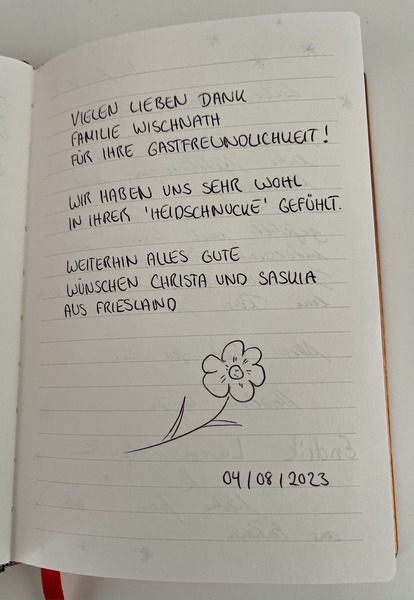 VIELEN LIEBEN DANK
FAMILIE WISCHNATH
FÜR IHRE GASTFREUNDLICHKEIT!
WIR HABEN UNS SEHR WOHL
IN IHRER 'HEIDSCHNUCKE' GEFÜHLT.
WEITERHIN ALLES GUTE
WÜNSCHEN CHRISTA UND SASKIA
AUS FRIESLAND
04/08/2023